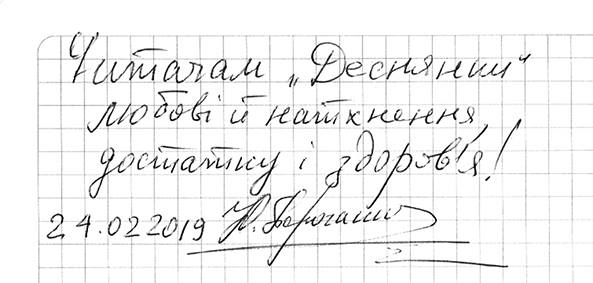 Читачам „Деснянки"
любові й натхнення,
достатку і здоров'я!
24.02 2019